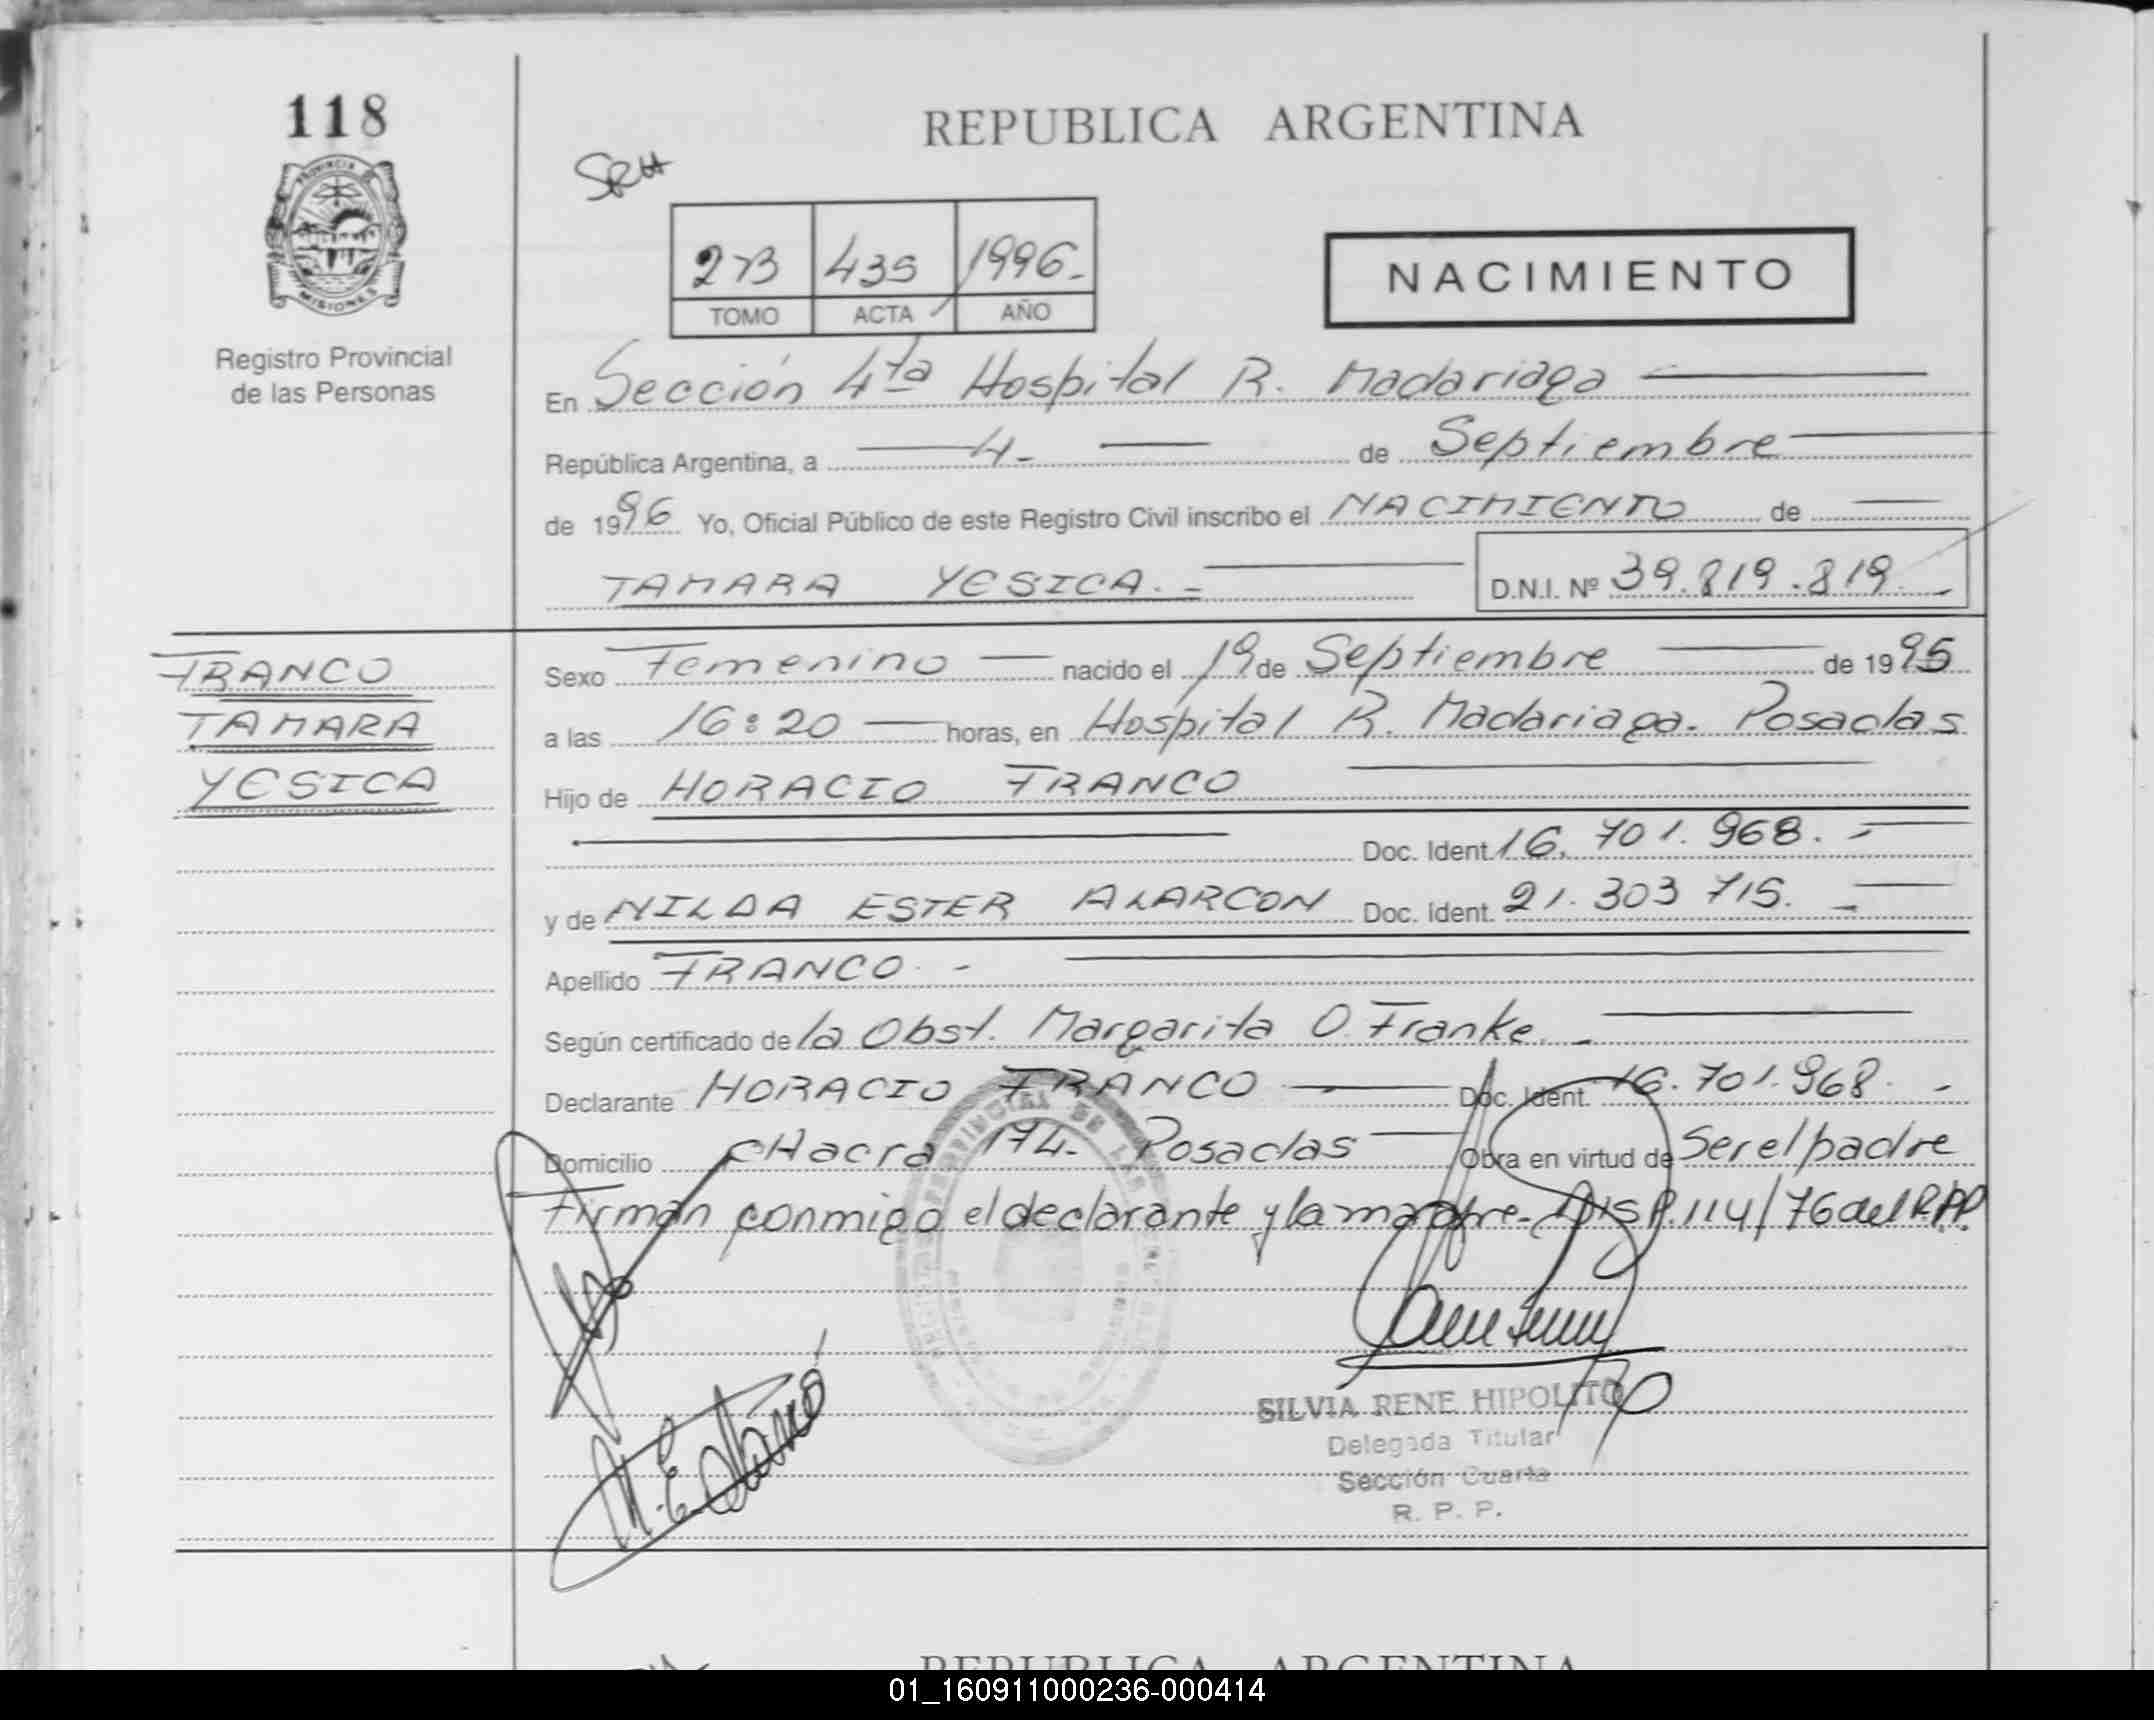 118
PROVINCIA DE
MISIONES
Registro Provincial
de las Personas
REPUBLICA ARGENTINA
SRH
273 435 1996.
TOMO ACTA AÑO
NACIMIENTO
En Sección 4ta Hospital R. Madariaga
República Argentina, a 4. de Septiembre
de 1996 Yo, Oficial Público de este Registro Civil inscribo el NACIMIENTO de
TAMARA YESICA.= D.N.I. Nº 39.819.819
FRANCO
TAMARA
YESICA
Sexo Femenino nacido el 19 de Septiembre de 1995
a las 16:20 horas, en Hospital R. Madariaga. Posadas
Hijo de HORACIO FRANCO
Doc. Ident. 16.701.968.
y de NILDA ESTER ALARCON Doc. Ident. 21.303 715.
Apellido FRANCO.-
Según certificado de la Obst. Margarita O. Franke.
Declarante HORACIO FRANCO Doc. Ident. 16.701.968.-
Domicilio CHacra 174. Posadas Obra en virtud de Ser el padre
Firman conmigo el declarante y la madre- DISP. 114/76 del R.P.P.
SILVIA RENE HIPOLITO
Delegada Titular
Sección Cuarta
R. P. P.
REPUBLICA ARGENTINA
01_160911000236-000414